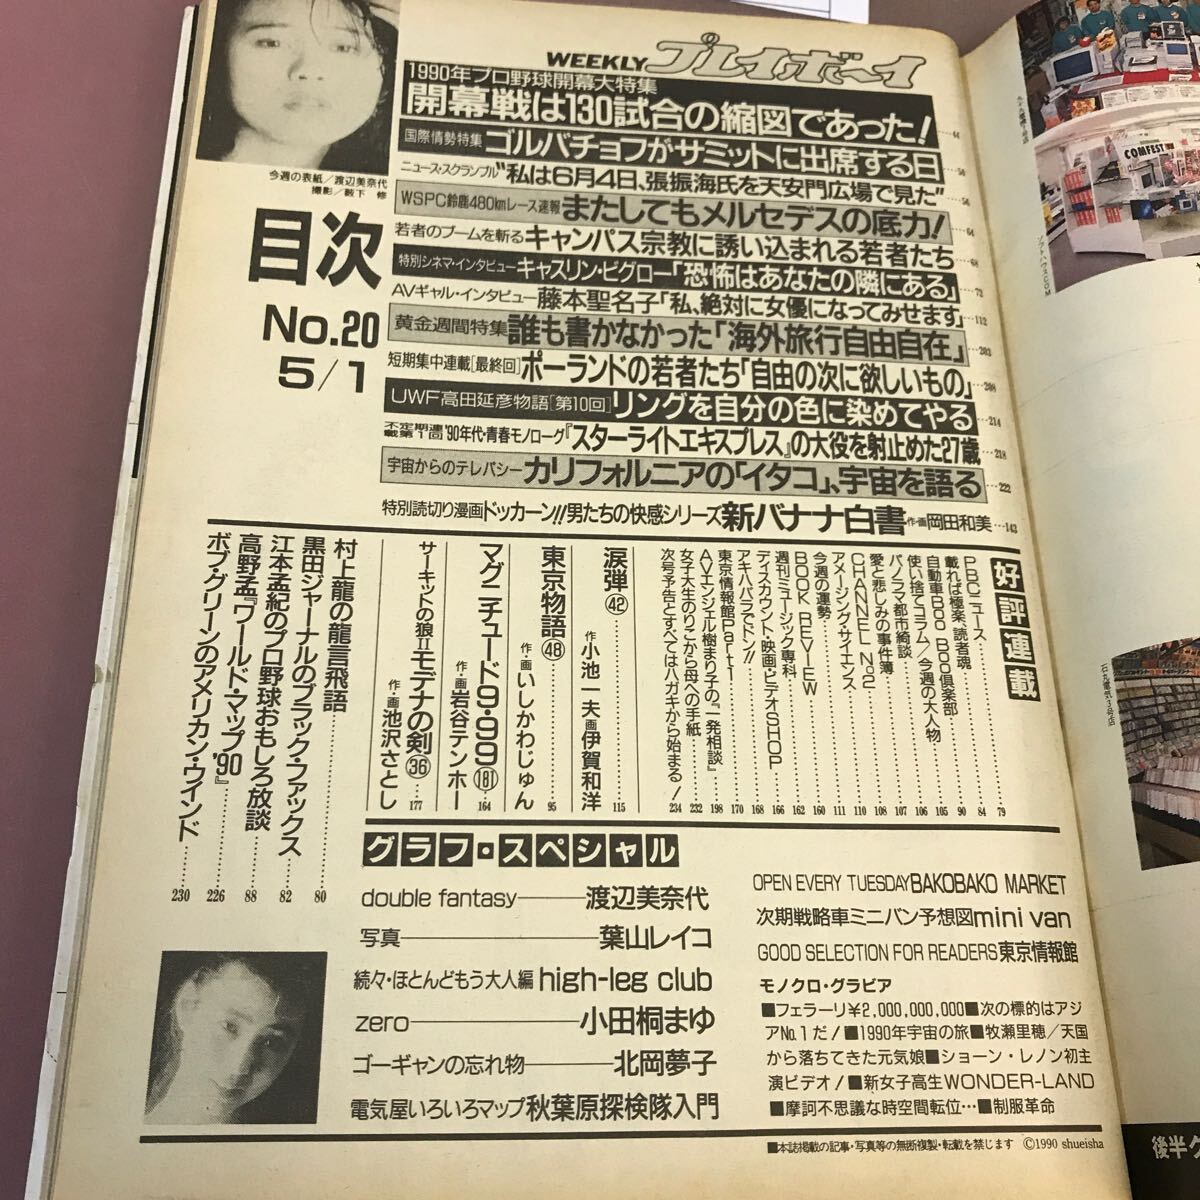 WEEKLY プレイボーイ
今週の表紙/渡辺美奈代
撮影/藪下 修
目次
No.20
5/1
1990年プロ野球開幕大特集
開幕戦は130試合の縮図であった!…44
国際情勢特集 ゴルバチョフがサミットに出席する日…50
ニュース・スクランブル "私は6月4日、張振海氏を天安門広場で見た"…56
WSPC鈴鹿480kmレース速報 またしてもメルセデスの底力!…64
若者のブームを斬る キャンパス宗教に誘い込まれる若者たち…68
特別シネマ・インタビュー キャスリン・ビグロー「恐怖はあなたの隣にある」…72
AVギャル・インタビュー 藤本聖名子「私、絶対に女優になってみせます」…112
黄金週間特集 誰も書かなかった「海外旅行自由自在」…203
短期集中連載[最終回] ポーランドの若者たち「自由の次に欲しいもの」…208
UWF高田延彦物語[第10回] リングを自分の色に染めてやる…214
不定期連載第1回 '90年代・青春モノローグ『スターライトエキスプレス』の大役を射止めた27歳…218
宇宙からのテレパシー カリフォルニアの「イタコ」、宇宙を語る…222
特別読切り漫画 ドッカーン!!男たちの快感シリーズ 新バナナ白書 作・画 岡田和美…143
好評連載
PBCニュース…79
載れば極楽、読者魂…84
自動車Boo Boo倶楽部…90
使い捨てコラム/今週の大人物…105
パノラマ都市綺談…106
愛と悲しみの事件簿…107
CHANNEL No2…108
アメージング・サイエンス…110
今週の運勢…111
BOOK REVIEW…160
週刊ミュージック専科…162
ディスカウント・映画・ビデオSHOP…166
アキハバラでドン!!…168
東京情報館Part1…170
AVエンジェル樹まり子の『一発相談』…198
女子大生のりこから母への手紙…232
次号予告とすべてはハガキから始まる!…234
涙弾㊷ 作 小池一夫 画 伊賀和洋…115
東京物語㊽ 作・画 いしかわじゅん…95
マグニチュード9・99(181) 作・画 岩谷テンホー…164
サーキットの狼II モデナの剣㊱ 作・画 池沢さとし…177
村上龍の龍言飛語…80
黒田ジャーナルのブラック・ファックス…82
江本孟紀のプロ野球おもしろ放談…88
高野孟『ワールド・マップ'90』…226
ボブ・グリーンのアメリカン・ウインド…230
グラフ・スペシャル
double fantasy──渡辺美奈代
写真──葉山レイコ
続々・ほとんどもう大人編 high-leg club
zero──小田桐まゆ
ゴーギャンの忘れ物──北岡夢子
電気屋いろいろマップ 秋葉原探検隊入門
OPEN EVERY TUESDAY BAKOBAKO MARKET
次期戦略車ミニバン予想図 mini van
GOOD SELECTION FOR READERS 東京情報館
モノクロ・グラビア
■フェラーリ¥2,000,000,000■次の標的はアジ
アNo.1だ!■1990年宇宙の旅■牧瀬里穂/天国
から落ちてきた元気娘■ショーン・レノン初主
演ビデオ!■新女子高生WONDER-LAND
■摩訶不思議な時空間転位…■制服革命
■本誌掲載の記事・写真等の無断複製・転載を禁じます ©1990 shueisha
COMFEST
ソフトハウスCOM
石丸電気3号店
後半グ